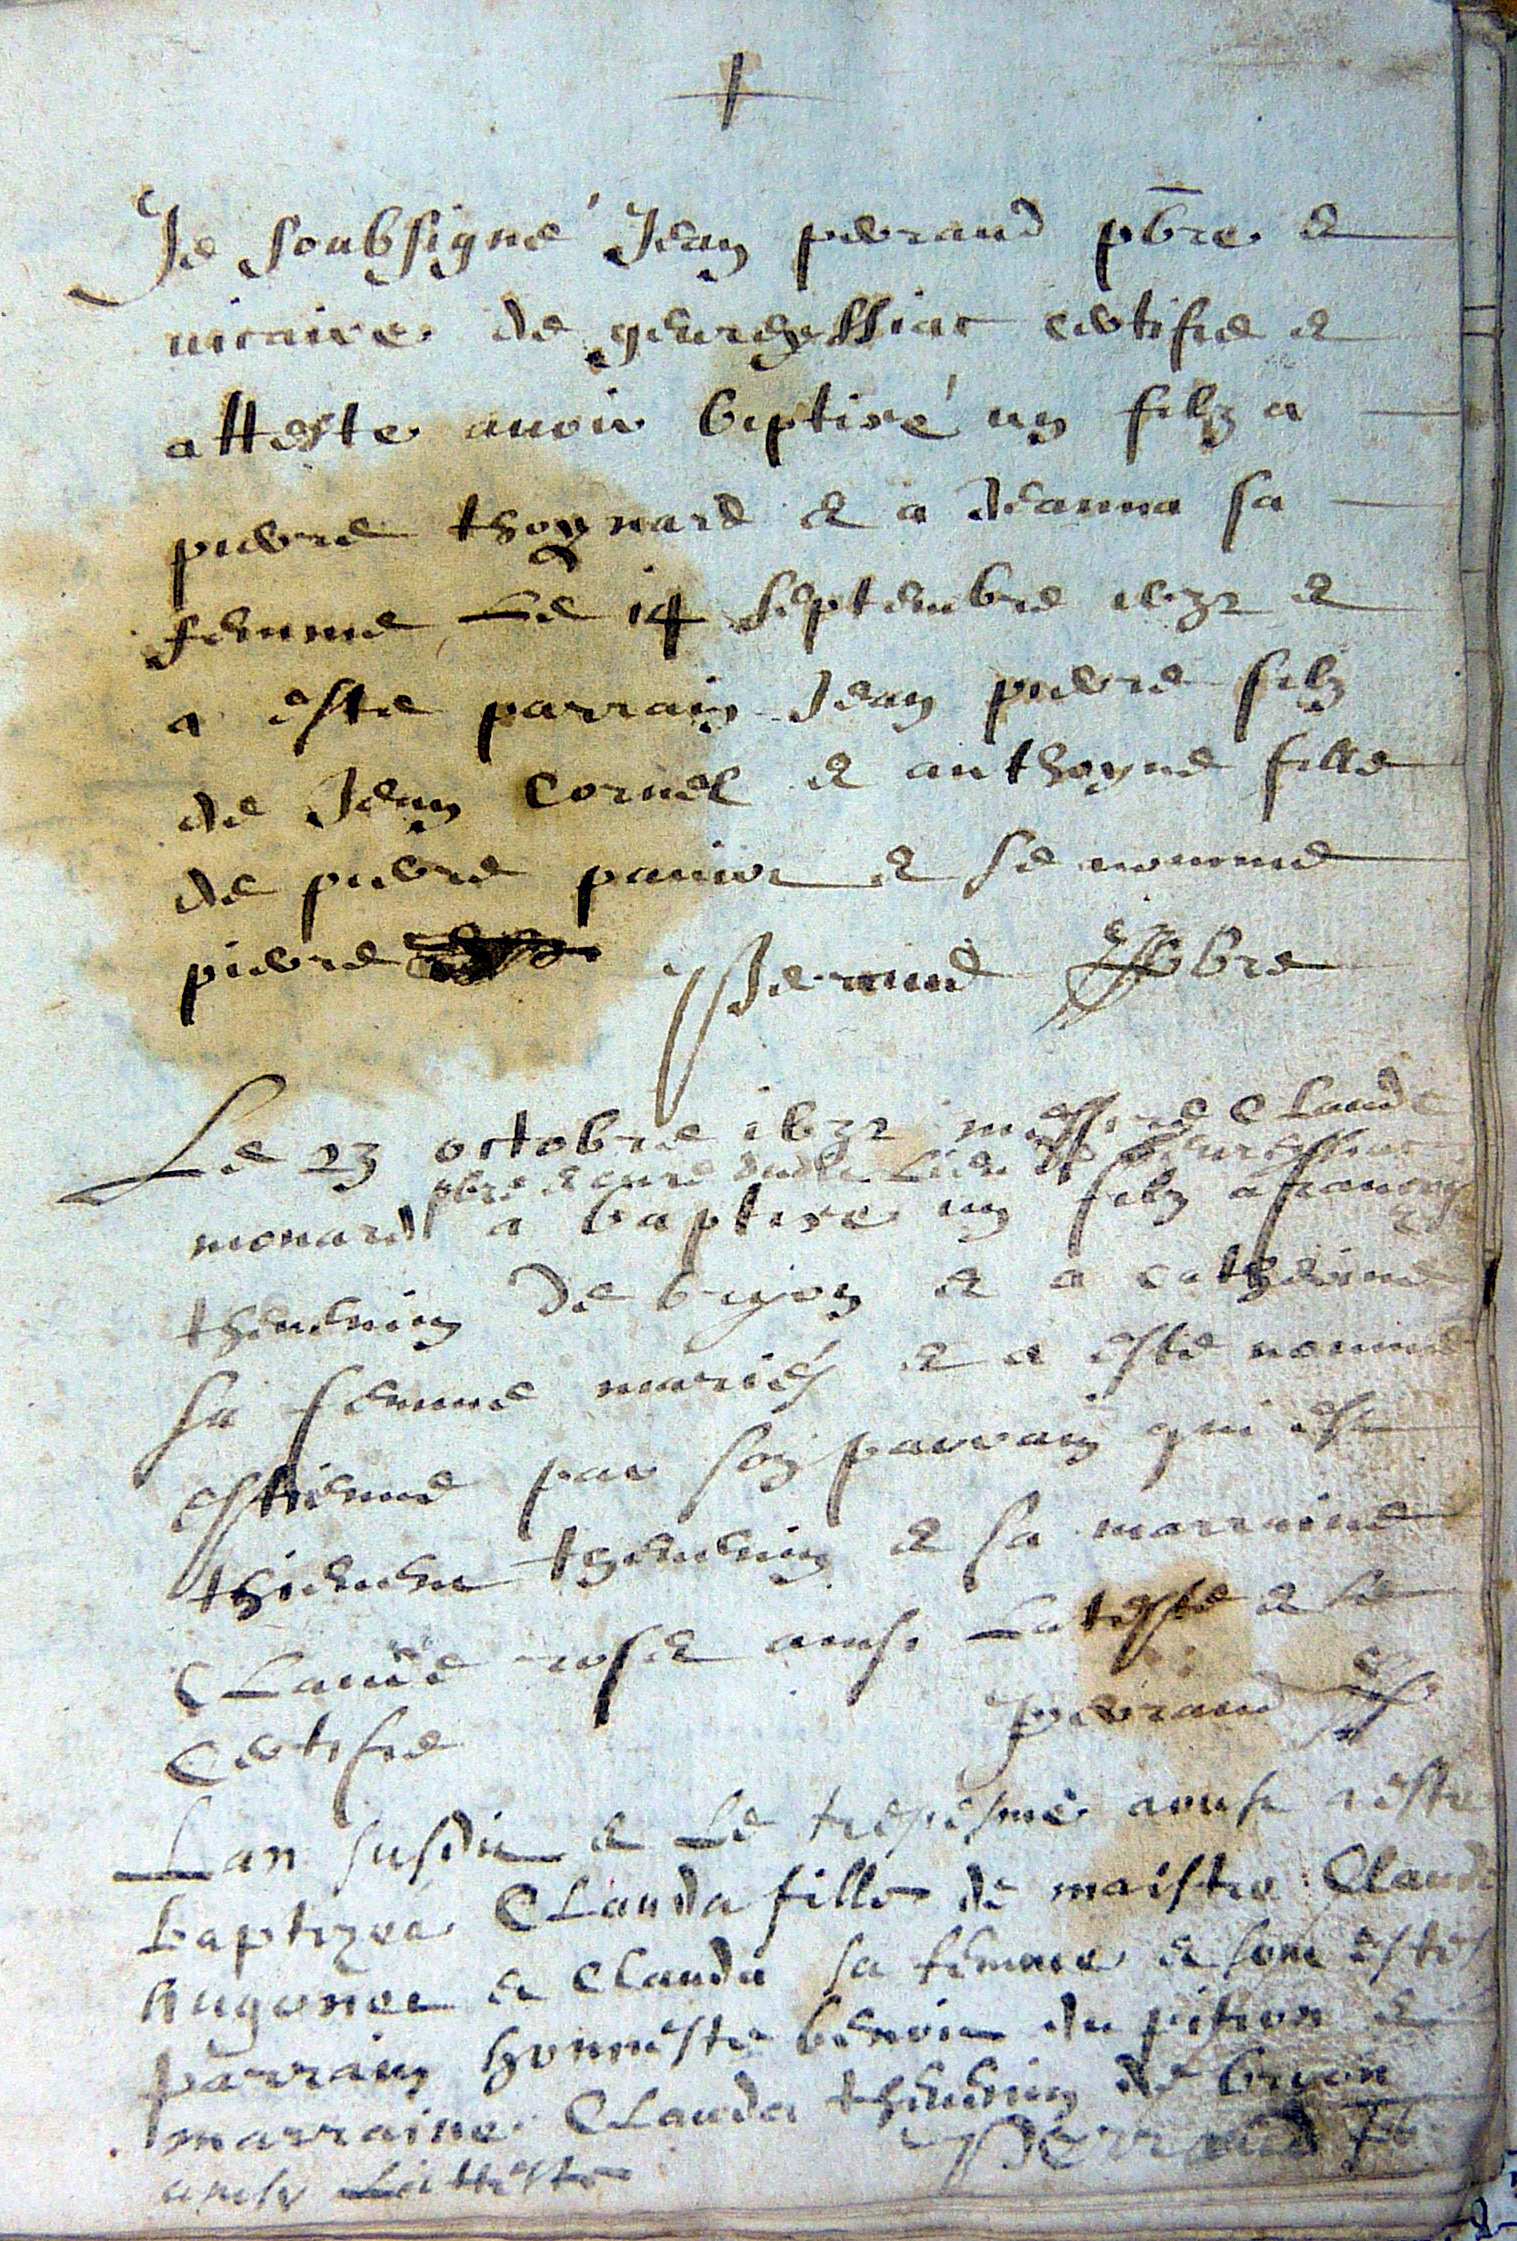 Je soubsigné Jean perraud pbre &
vicaire de geureyssiat certifie &
atteste avoir baptisé un filz a
pierre thoynard & a Jeanna sa
femme Le 14 septembre 1632 &
a esté parrain Jean pierre filz
de Jean Cornel & anthoyne fille
de pierre & se nomme
pierre Perraud pbre
Le 23 octobre 1632 messire Claude
pbre & curé dudit Lieu de geureyssiat
monard a baptisé un filz a francoys
thevenin de bryon & a catherine
sa femme mariés & a esté nommé
estienne par son parrain qui est
thievent thevenin & sa marraine
Claude rose ainsi Lateste & le
Certifie perraud
Lan susdit & Le aoust a esté
baptizea Clauda fille de maistre Claude
hugonet & Clauda sa femme & sont estés
parrain honneste benoit du pition &
marraine Clauda thevenin de bryon
ainsy Latteste Perraud pb